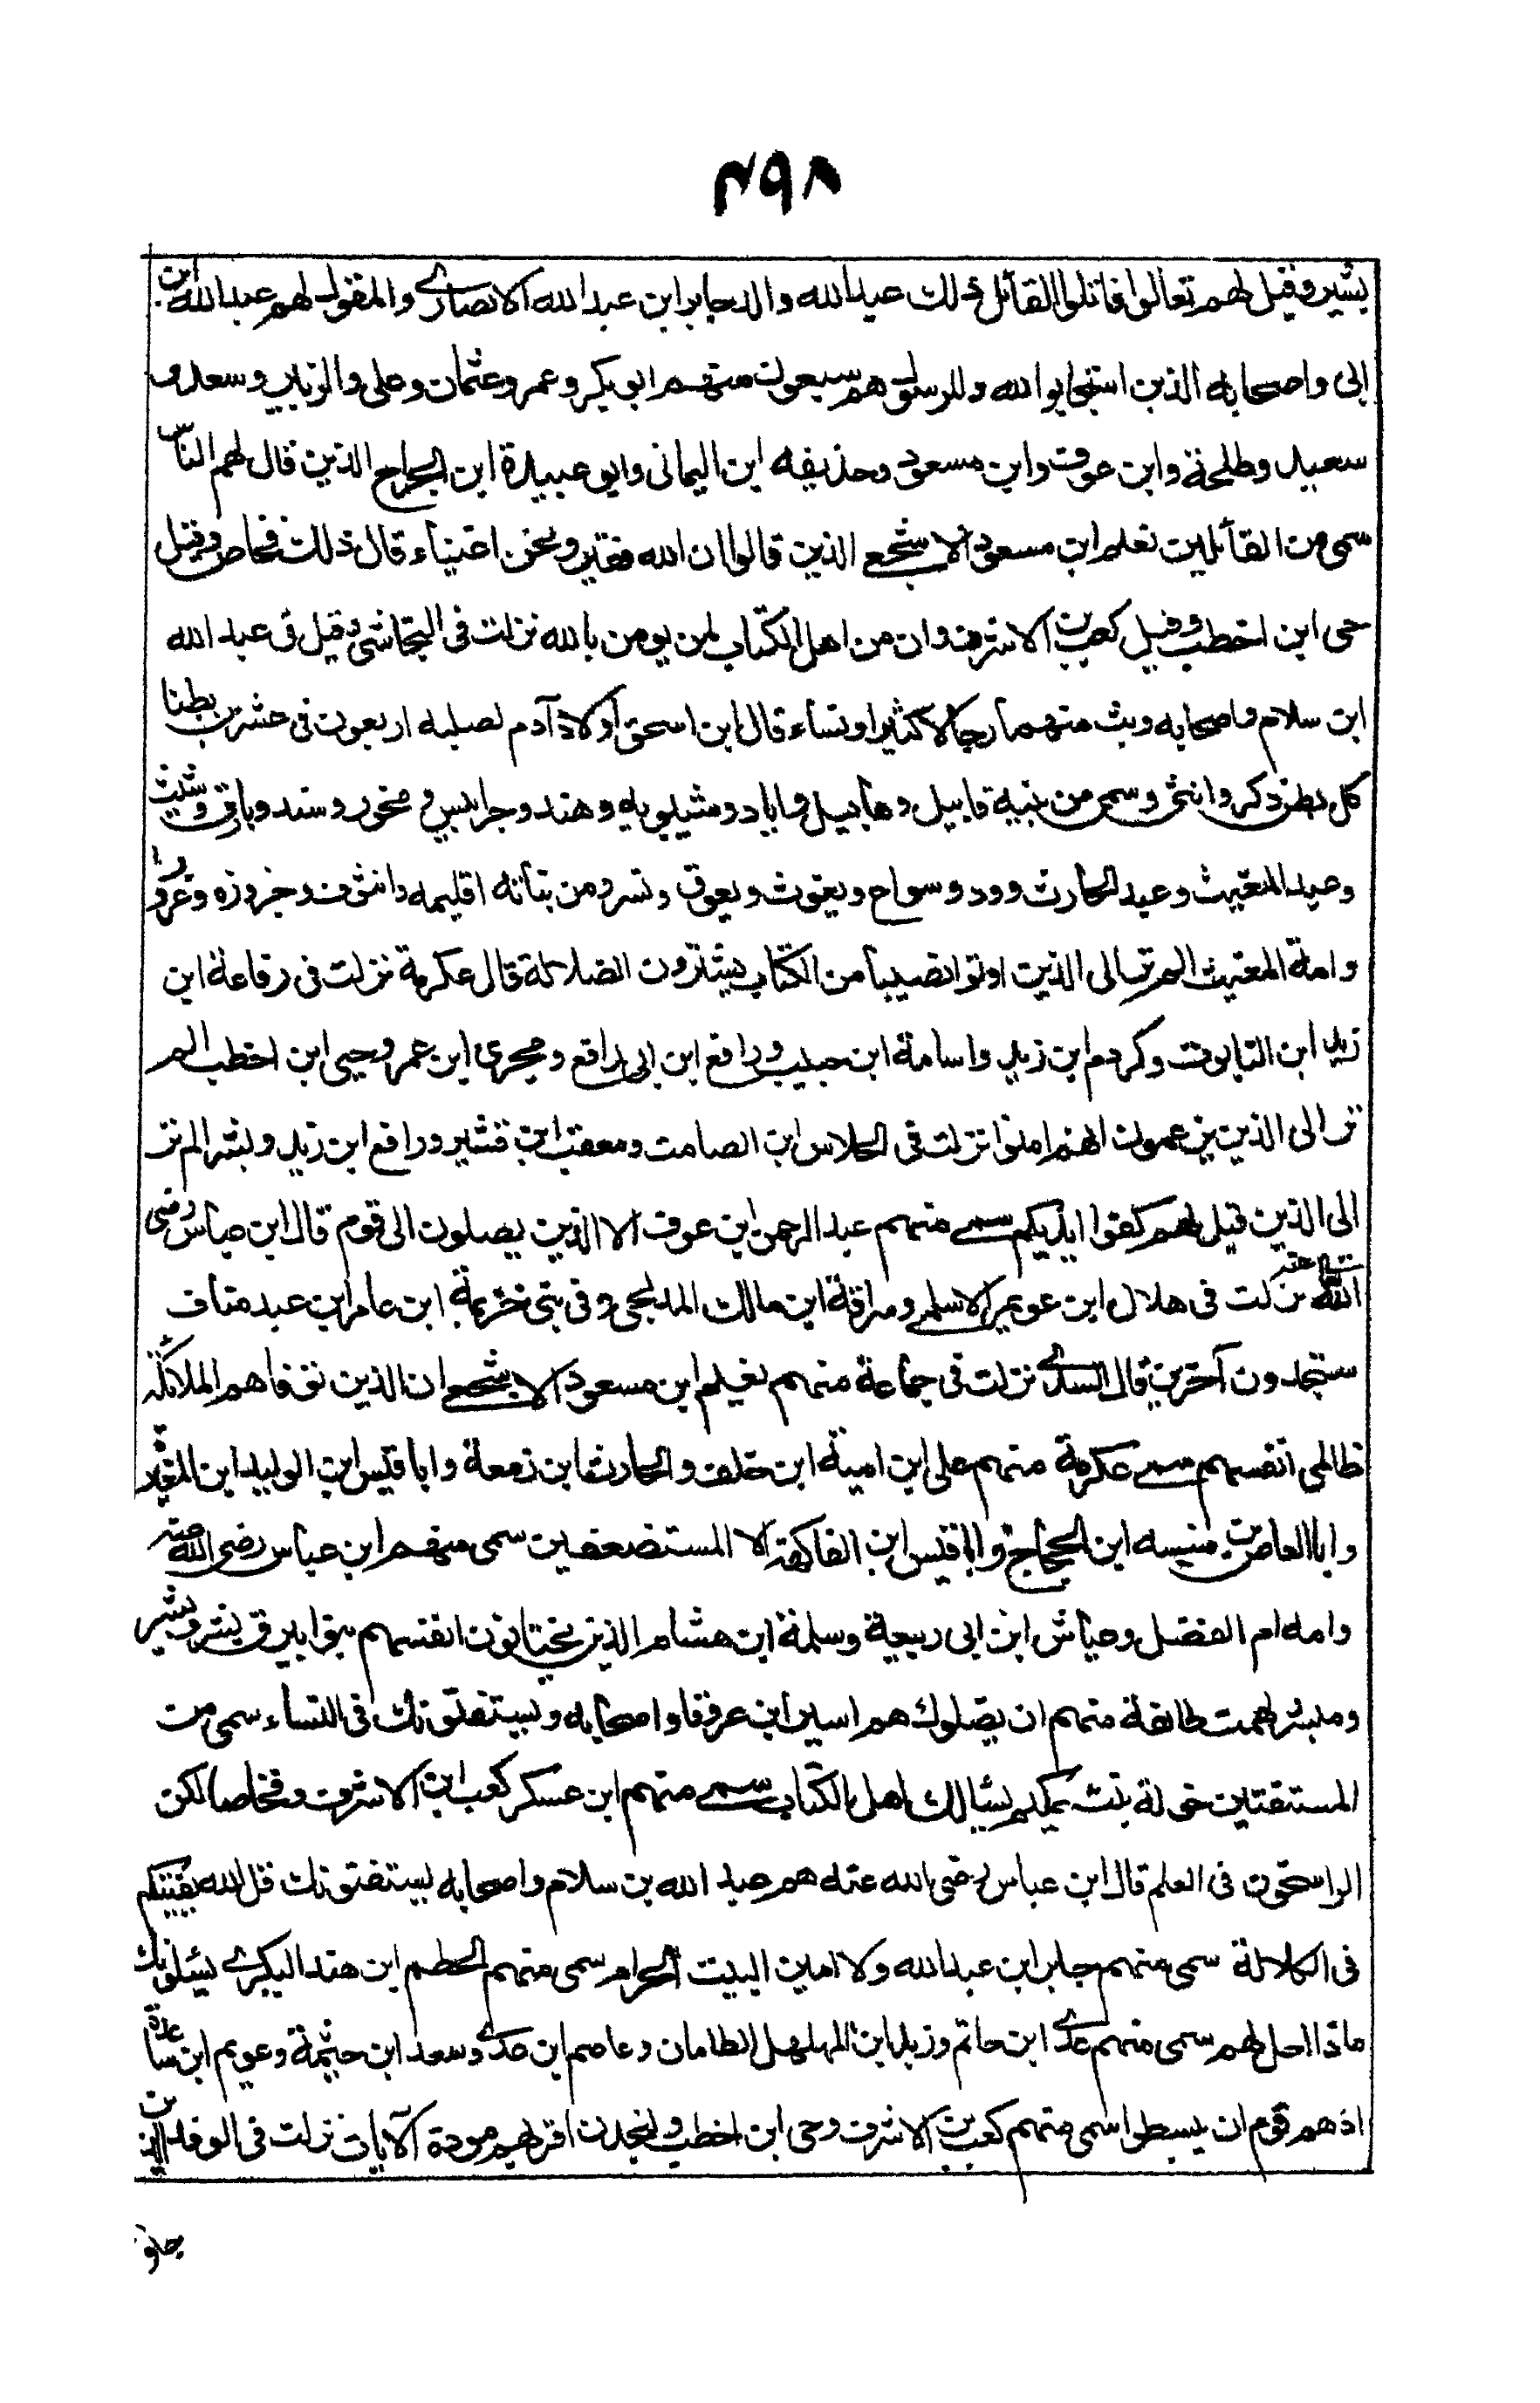 ٤٩٨
بشير وقيل لهم تعالوا قاتلوا القائل ذلك عبد الله والد جابر ابن عبد الله الانصاري والمقول لهم عبد الله ابن
ابى واصحابه الذين استجابوا لله وللرسول هم سبعون منهم ابو بكر وعمر وعثمان وعلى والزبير وسعد و
سعيد وطلحة وابن عوف وابن مسعود وحذيفه ابن اليمانى وابو عبيدة ابن الجراح الذين قال لهم الناس
سمى من القائلين نعيم ابن مسعود الاشجعى الذين قالوا ان الله فقير ونحن اغنياء قال ذلك فنحاص وقيل
حى ابن اخطب وقيل كعب بن الاشرف وان من اهل الكتاب لمن يومن بالله نزلت فى النجاشى وقيل فى عبد الله
ابن سلام واصحابه وبث منهما رجالا كثيرا ونساء قال ابن اسحق اولاد آدم لصلبه اربعون فى عشرين بطنا
كل بطن ذكر وانثى وسمى من بنيه قابيل وهابيل واياد و شبوبه وهند و صرابيس و مخور وسند وبارق وشيث
وعبد المغيث وعبد الحارث وود وسواع ويغوث ويعوق ونسر ومن بناته اقليمه واشوف وجزوزه وعزورا
وامة المغيث الم تر الى الذين اوتوا نصيبا من الكتاب يشترون الضلالة قال عكرمة نزلت فى رفاعة ابن
زيد ابن التابوت وكردم ابن زيد واسامة ابن حبيب ورافع ابن ابى رافع وبحرى ابن عمرو وحيى ابن اخطب الم
تر الى الذين يزعمون انهم امنوا نزلت فى الجلاس ابن الصامت ومعتب ابن قشير ورافع ابن زيد وبشر الم تر
الى الذين قيل لهم كفوا ايديكم سمى منهم عبد الرحمن ابن عوف الا الذين يصلون الى قوم قال ابن عباس رضى
الله تعالى عنه نزلت فى هلال ابن عويمر الاسلمى وسراقة ابن مالك المدلجى وفى بنى خزيمة ابن عامر ابن عبد مناف
ستجدون آخرين قال السدى نزلت فى جماعة منهم نعيم ابن مسعود الاشجعى ان الذين توفاهم الملائكة
ظالمى انفسهم سمى عكرمة منهم على ابن امية ابن خلف والحارث ابن زمعة وابا قيس ابن الوليد ابن المغيرة
وابا العاص بن منبه ابن الحجاج وابا قيس ابن الفاكهة الا المستضعفين سمى منهم ابن عباس رضى الله عنه
وامه ام الفضل وعياش ابن ابى ربيعة وسلمة ابن هشام الذين يختانون انفسهم بنوا بيرق بشر وبشير
ومبشر لهمت طائفة منهم ان يضلوك هم اسير ابن عروة واصحابه ويستفتونك فى النساء سمى من
المستفتين خولة بنت حكيم يسالك اهل الكتاب سمى منهم ابن عسكر كعب ابن الاشرف وفنحاصا لكن
الراسخون فى العلم قال ابن عباس رضى الله عنه هم عبد الله بن سلام واصحابه يستفتونك قل الله يفتيكم
فى الكلالة سمى منهم جابر ابن عبد الله ولا امين البيت الحرام سمى منهم الحطم ابن هند البكرى يسئلونك
ماذا احل لهم سمى منهم عدى ابن حاتم وزيد ابن المهلهل الطائيان وعاصم ابن عدى وسعد ابن حثيمة وعويم ابن ساعدة
اذ هم قوم ان يبسطوا سمى منهم كعب بن الاشرف وحى ابن اخطب ولتجدن اقربهم مودة الآيات نزلت فى الوفد الذين
جاؤ